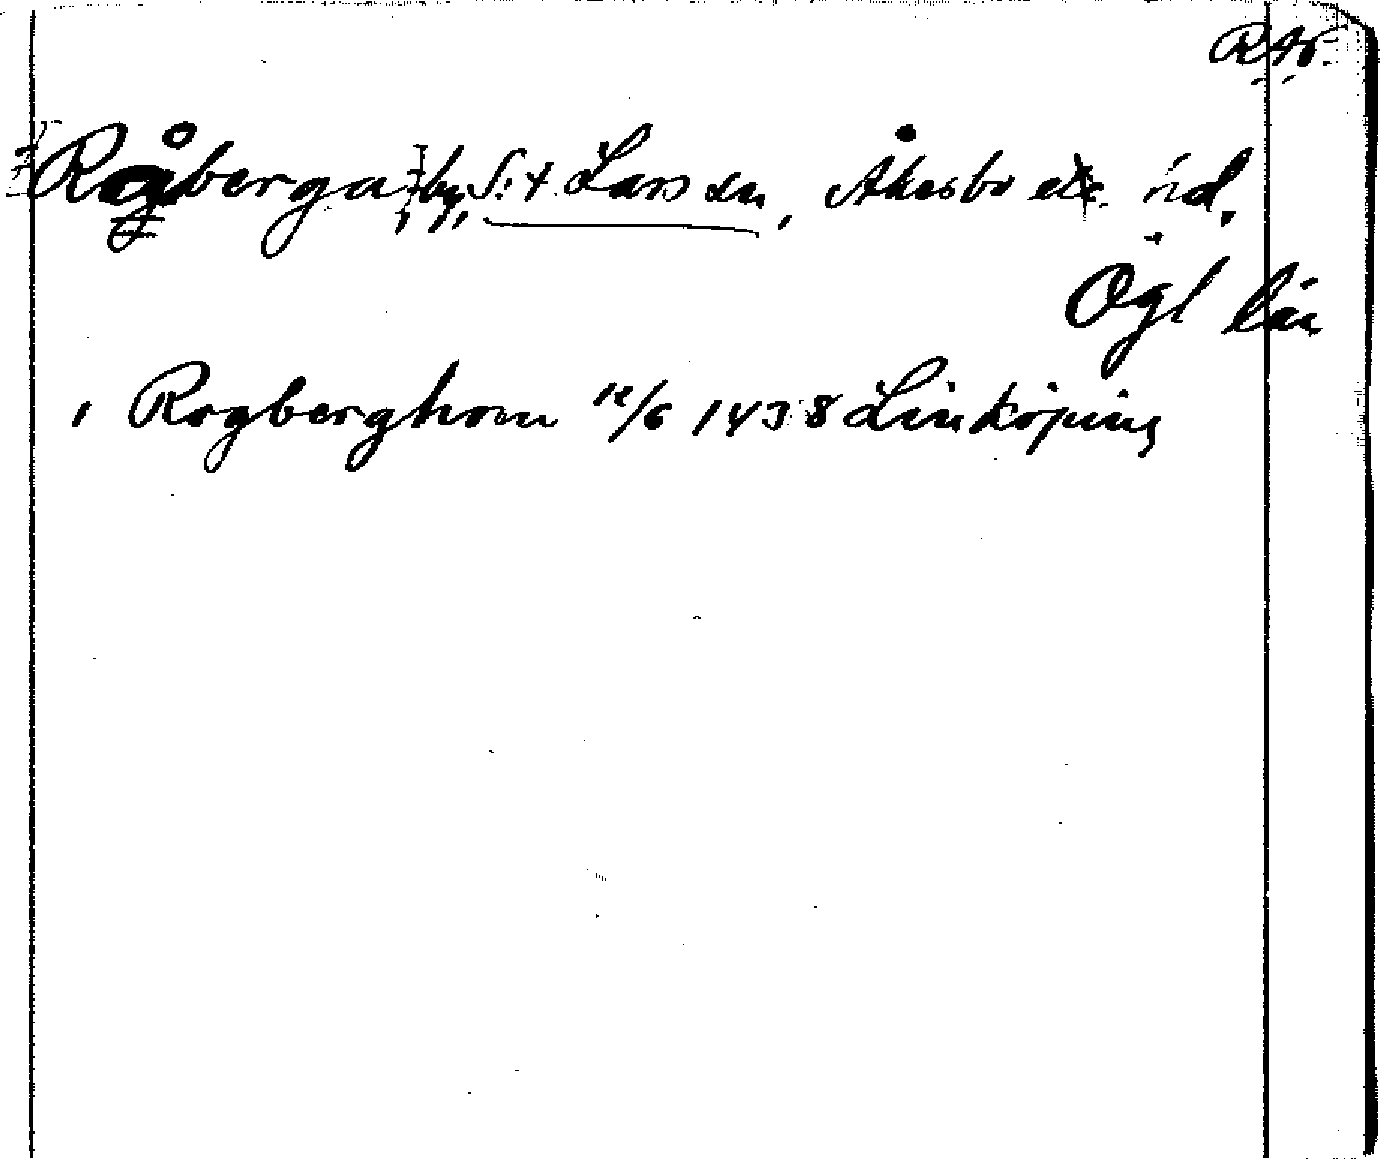 RAp.
Råberga, by, S:t Lars sn, Åkesbo etc. hd.
Ögl län
i Rogberghom 12/6 1438 Linköping